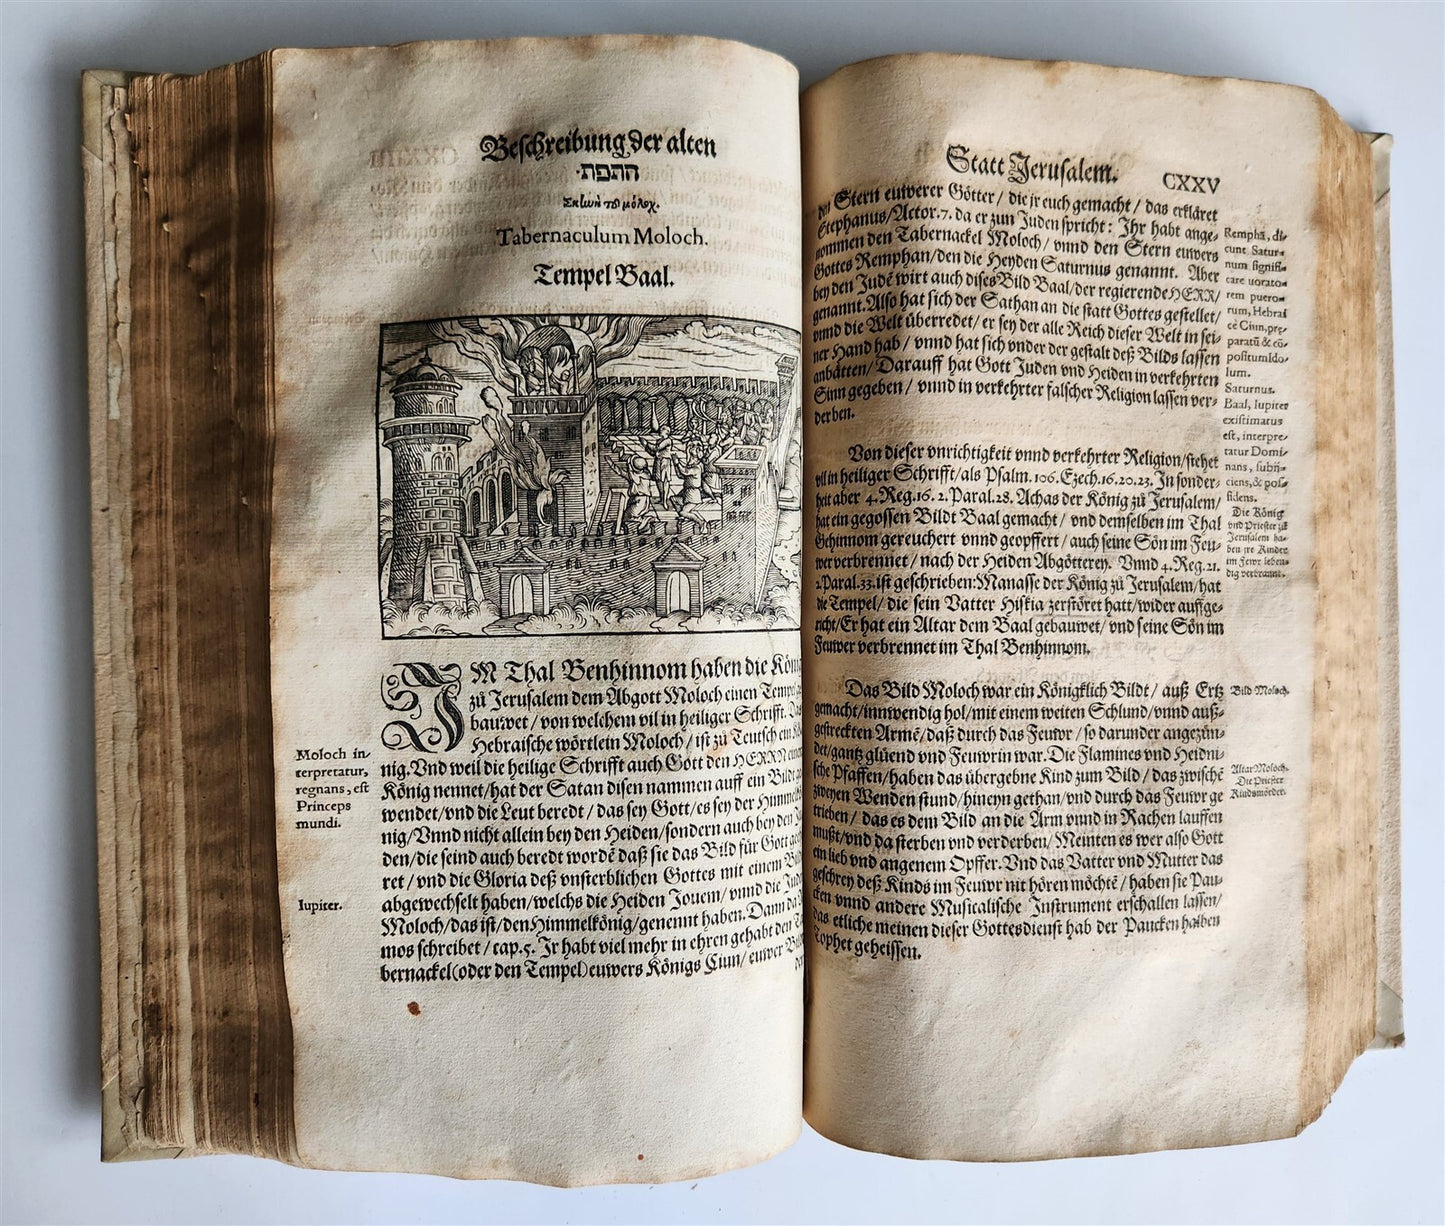 Beschreibung der alten
התפת
Σκηνὴ τοῦ μόλοχ.
Tabernaculum Moloch.
Tempel Baal.
IM Thal Benhinnom haben die König
zů Jerusalem dem Abgott Moloch einen Tempel
bauwet / von welchem vil in heiliger Schrifft. Das
Hebraische wörtlein Moloch / ist zů Teutsch ein Kö-
nig. Vnd weil die heilige Schrifft auch Gott den HERRN einen
König nennet / hat der Satan disen nammen auff ein Bildt
wendet / vnd die Leut beredt / das sey Gott / es sey der Himmelkö
nig / Vnnd nicht allein bey den Heiden / sondern auch bey den Jů
den / die seind auch beredt wordē daß sie das Bild für Gott
ret / vnd die Gloria deß vnsterblichen Gottes mit einem Bild
abgewechselt haben / welchs die Heiden Jouem / vnnd die Juden
Moloch / das ist / den Himmelkönig / genennt haben. Dann da
mos schreibet / cap. 5. Jr habt viel mehr in ehren gehabt den Ta
bernackel (oder den Tempel) euwers Königs Ciun / euwer Bilder
Moloch in-
terpretatur,
regnans, est
Princeps
mundi.
Iupiter.
Statt Jerusalem. CXXV
den Stern euwerer Götter / die jr euch gemacht / das erkläret
Stephanus / Actor. 7. da er zun Juden spricht: Ihr habt ange-
nommen den Tabernackel Moloch / vnnd den Stern euwers
Gottes Remphan / den die Heyden Saturnus genannt. Aber
bey den Judē wirt auch dises Bild Baal / der regierende HERR /
genannt. Also hat sich der Sathan an die statt Gottes gestellet /
vnnd die Welt überredet / er sey der alle Reich dieser Welt in sei-
ner Hand hab / vnnd hat sich vnder der gestalt deß Bilds lassen
anbätten / Darauff hat Gott Juden vnd Heiden in verkehrten
Sinn gegeben / vnnd in verkehrter falscher Religion lassen ver-
derben.
Von dieser vnrichtigkeit vnnd verkehrter Religion / stehet
vil in heiliger Schrifft / als Psalm. 106. Ezech. 16. 20. 23. In sonder-
heit aber 4. Reg. 16. 2. Paral. 28. Achas der König zů Jerusalem /
hat ein gegossen Bildt Baal gemacht / vnd demselben im Thal
Gehinnom gereuchert vnnd geopffert / auch seine Sön im Feu-
wer verbrennet / nach der Heiden Abgötterey. Vnnd 4. Reg. 21.
2. Paral. 33. ist geschrieben: Manasse der König zů Jerusalem / hat
die Tempel / die sein Vatter Hiskia zerstöret hatt / wider auffge-
richt / Er hat ein Altar dem Baal gebauwet / vnd seine Sön im
Feuwer verbrennet im Thal Benhinnom.
Das Bild Moloch war ein Königklich Bildt / auß Ertz
gemacht / innwendig hol / mit einem weiten Schlund / vnnd auß-
gestreckten Armē / daß durch das Feuwr / so darunder angezün-
det / gantz glüend vnd Feuwrin war. Die Flamines vnd Heidni-
sche Pfaffen / haben das übergebne Kind zum Bild / das zwischē
zweyen Wenden stund / hineyn gethan / vnd durch das Feuwr ge
trieben / das es dem Bild an die Arm vnnd in Rachen lauffen
mußt / vnd da sterben vnd verderben / Meinten es wer also Gott
ein lieb vnd angenem Opffer. Vnd das Vatter vnd Mutter das
geschrey deß Kinds im Feuwr nit hören möchtē / haben sie Pau-
cken vnnd andere Musicalische Instrument erschallen lassen /
das etliche meinen dieser Gottesdienst hab der Paucken halben
Tophet geheissen.
Remphā, di-
cunt Satur-
num signifi-
care uorato-
rem puero-
rum, Hebrai
cè Ciun, præ-
paratū & cō-
positum ido-
lum.
Saturnus.
Baal, Iupiter
existimatus
est, interpre-
tatur Domi-
nans, subij-
ciens, & pos-
sidens.
Die König
vnd Priester zů
Jerusalem ha-
ben jre Kinder
im Fewr leben-
dig verbrannt.
Bild Moloch.
Altar Moloch.
Die Priester
Kindsmörder.